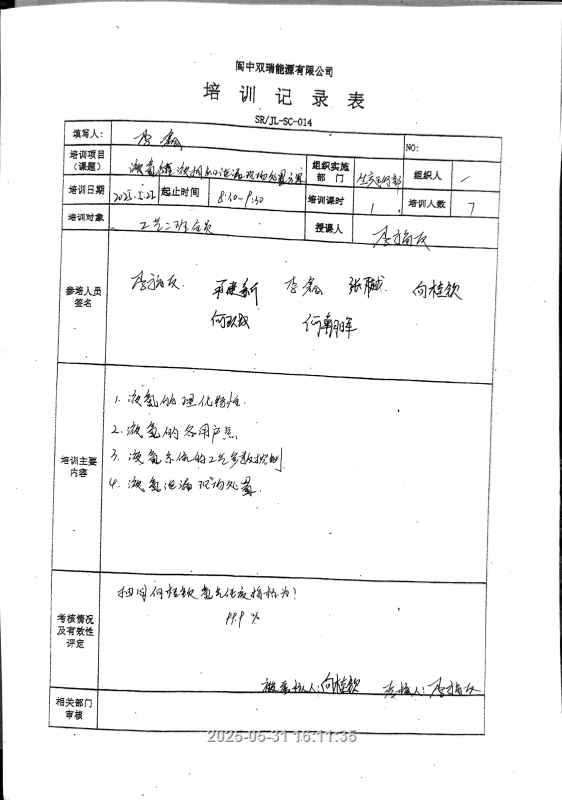 阆中双瑞能源有限公司
培训记录表
SR/JL-SC-014
填写人: 李鑫 NO:
培训项目(课题) 液氨储 泄漏现场处置方案 组织实施部门 生产运行部 组织人 /
培训日期 2025.5.22 起止时间 8:10-9:30 培训课时 1 培训人数 7
培训对象 工艺二班全员 授课人
参培人员签名 李鑫 张 向桂钦
何朝晖
培训主要内容
1. 液氨的理化特性.
2. 液氨的各用户点.
3. 液氨系统的工艺参数控制
4. 液氨泄漏现场处置.
考核情况及有效性评定
99.9%
被考核人: 向桂钦 考核人:
相关部门审核
2025-05-31 16:11:35